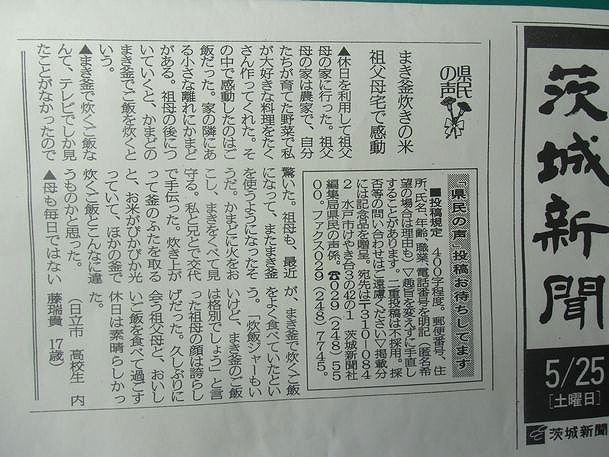 茨城新聞
5/25
[土曜日]
茨城新聞
県民
の声
まき釜炊きの米
祖父母宅で感動
▲休日を利用して祖父
母の家に行った。祖父
母の家は農家で、自分
たちが育てた野菜で私
が大好きな料理をたく
さん作ってくれた。そ
の中で感動したのはご
飯だった。家の隣にあ
る小さな離れにかまど
がある。祖母の後につ
いていくと、かまどの
まき釜でご飯を炊くと
いう。
▲まき釜で炊くご飯な
んて、テレビでしか見
たことがなかったので
驚いた。祖母も、最近
になって、またまき釜
を使うようになったそ
うだ。かまどに火をお
こし、まきをくべて見
守る。私と兄とで交代
で手伝った。炊き上が
って釜のふたを取る
と、お米がぴかぴか光
っていて、ほかの釜で
炊くご飯とこんなに違
うものかと思った。
▲母も毎日ではない
が、まき釜で炊くご飯
をよく食べていたとい
う。「炊飯ジャーもい
いけど、まき釜のご飯
は格別でしょう」と言
った祖母の顔は誇らし
げだった。久しぶりに
会う祖父母と、おいし
いご飯を食べて過ごす
休日は素晴らしかっ
た。
（日立市　高校生　内
藤瑞貴　17歳）
「県民の声」投稿お待ちしてます
■投稿規定　400字程度。郵便番号、住
所、氏名、年齢、職業、電話番号を明記（匿名希
望の場合は理由も）▽趣旨を変えずに手直し
することがあります。二重投稿は不採用。採
否等の問い合わせはご遠慮ください▽掲載分
には記念品を贈呈。宛先は〒310-084
2　水戸市けやき台3の40の1　茨城新聞社
編集局県民の声係、☎029（248）55
00。ファクス029（248）7745。